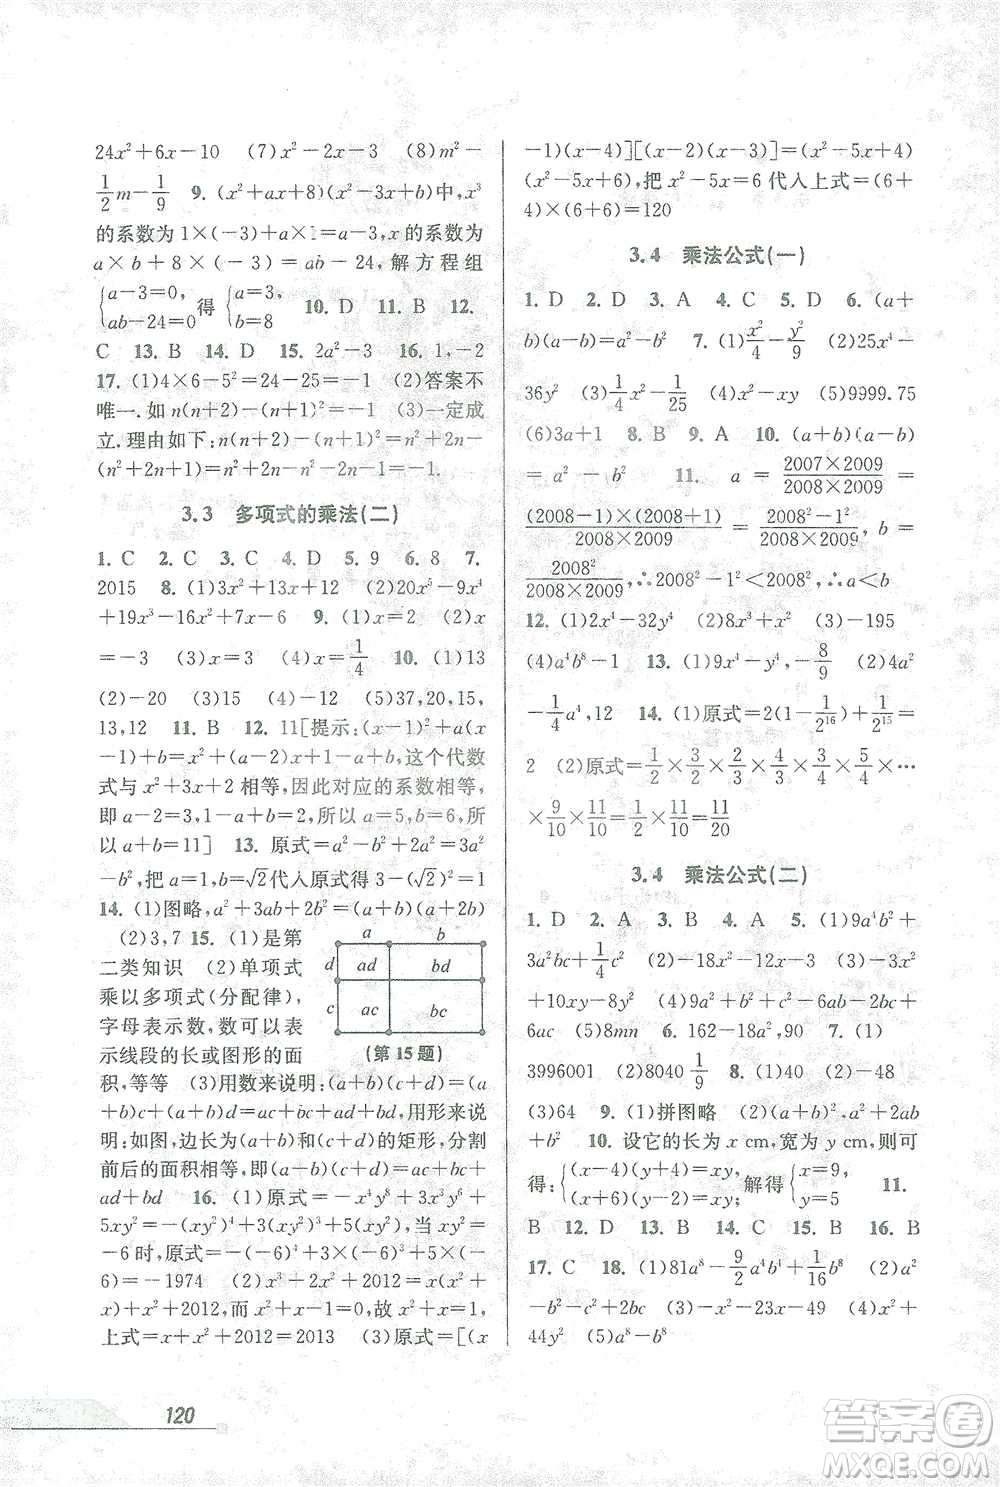 24x²+6x-10 (7)x²-2x-3 (8)m²-
1/2m-1/9 9. (x²+ax+8)(x²-3x+b)中,x³
的系数为1×(-3)+a×1=a-3,x的系数为
a×b+8×(-3)=ab-24,解方程组
{a-3=0, ab-24=0 得 {a=3, b=8 10. D 11. B 12.
C 13. B 14. D 15. 2a²-3 16. 1,-2
17. (1)4×6-5²=24-25=-1 (2)答案不
唯一.如n(n+2)-(n+1)²=-1 (3)一定成
立.理由如下:n(n+2)-(n+1)²=n²+2n-
(n²+2n+1)=n²+2n-n²-2n-1=-1.
3.3 多项式的乘法(二)
1. C 2. C 3. C 4. D 5. 9 6. 8 7.
2015 8. (1)3x²+13x+12 (2)20x⁵-9x⁴
+19x³-16x²+7x-6 9. (1)x=2 (2)x
=-3 (3)x=4 (4)x=1/4 10. (1)13
(2)-20 (3)15 (4)-12 (5)37,20,15,
13,12 11. B 12. 11[提示:(x-1)²+a(x
-1)+b=x²+(a-2)x+1-a+b,这个代数
式与x²+3x+2相等,因此对应的系数相等,
即a-2=3,1-a+b=2,所以a=5,b=6.
所以a+b=11] 13. 原式=a²-b²+2a²=3a²
-b²,把a=1,b=√2代入原式得3-(√2)²=1
14. (1)图略,a²+3ab+2b²=(a+b)(a+2b)
(2)3,7 15. (1)是第
二类知识 (2)单项式
乘以多项式(分配律),
字母表示数,数可以表
示线段的长或图形的面
积,等等 (3)用数来说明:(a+b)(c+d)=(a
+b)c+(a+b)d=ac+bc+ad+bd,用形来说
明:如图,边长为(a+b)和(c+d)的矩形,分割
前后的面积相等,即(a+b)(c+d)=ac+bc+
ad+bd 16. (1)原式=-x⁴y⁸+3x³y⁶+
5xy²=-(xy²)⁴+3(xy²)³+5(xy²),当xy²=
-6时,原式=-(-6)⁴+3×(-6)³+5×
(-6)=-1974 (2)x³+2x²+2012=x³+
x²+x²+2012,而x²+x-1=0,故x³+x²=x,
上式=x+x²+2012=2013 (3)原式=[(x
a b
d ad bd
c ac bc
(第15题)
120
-1)(x-4)][(x-2)(x-3)]=(x²-5x+4)
(x²-5x+6),把x²-5x=6代入上式=(6+
4)×(6+6)=120
3.4 乘法公式(一)
1. D 2. D 3. A 4. C 5. D 6. (a+
b)(a-b)=a²-b² 7. (1)x²/4-y²/9 (2)25x⁴-
36y² (3)1/4x²-1/25 (4)x²-xy (5)9999.75
(6)3a+1 8. B 9. A 10. (a+b)(a-b)
=a²-b² 11. a=2007×2009/2008×2009=
(2008-1)×(2008+1)/2008×2009=2008²-1²/2008×2009, b=
2008²/2008×2009,∴2008²-1²<2008²,∴a<b
12. (1)2x⁴-32y⁴ (2)8x³+x² (3)-195
(4)a⁴b⁸-1 13. (1)9x⁴-y⁴,-8/9 (2)4a²
-1/4a⁴,12 14. (1)原式=2(1-1/2¹⁶)+1/2¹⁵=
2 (2)原式=1/2×3/2×2/3×4/3×3/4×5/4×…
×9/10×11/10=1/2×11/10=11/20
3.4 乘法公式(二)
1. D 2. A 3. B 4. A 5. (1)9a⁴b²+
3a²bc+1/4c² (2)-18x²-12x-3 (3)-3x²
+10xy-8y² (4)9a²+b²+c²-6ab-2bc+
6ac (5)8mn 6. 162-18a²,90 7. (1)
3996001 (2)8040 1/9 8. (1)12 (2)-48
(3)64 9. (1)拼图略 (2)(a+b)²,a²+2ab
+b² 10. 设它的长为x cm,宽为y cm,则可
得:{(x-4)(y+4)=xy; (x+6)(y-2)=xy; 解得{x=9, y=5 11.
B 12. D 13. B 14. C 15. D 16. B
17. C 18. (1)81a⁸-9/2a⁴b⁴+1/16b⁸ (2)a²
-b²-c²+2bc (3)-x²-23x-49 (4)x²+
44y² (5)a⁸-b⁸
答案卷
MXQE.COM